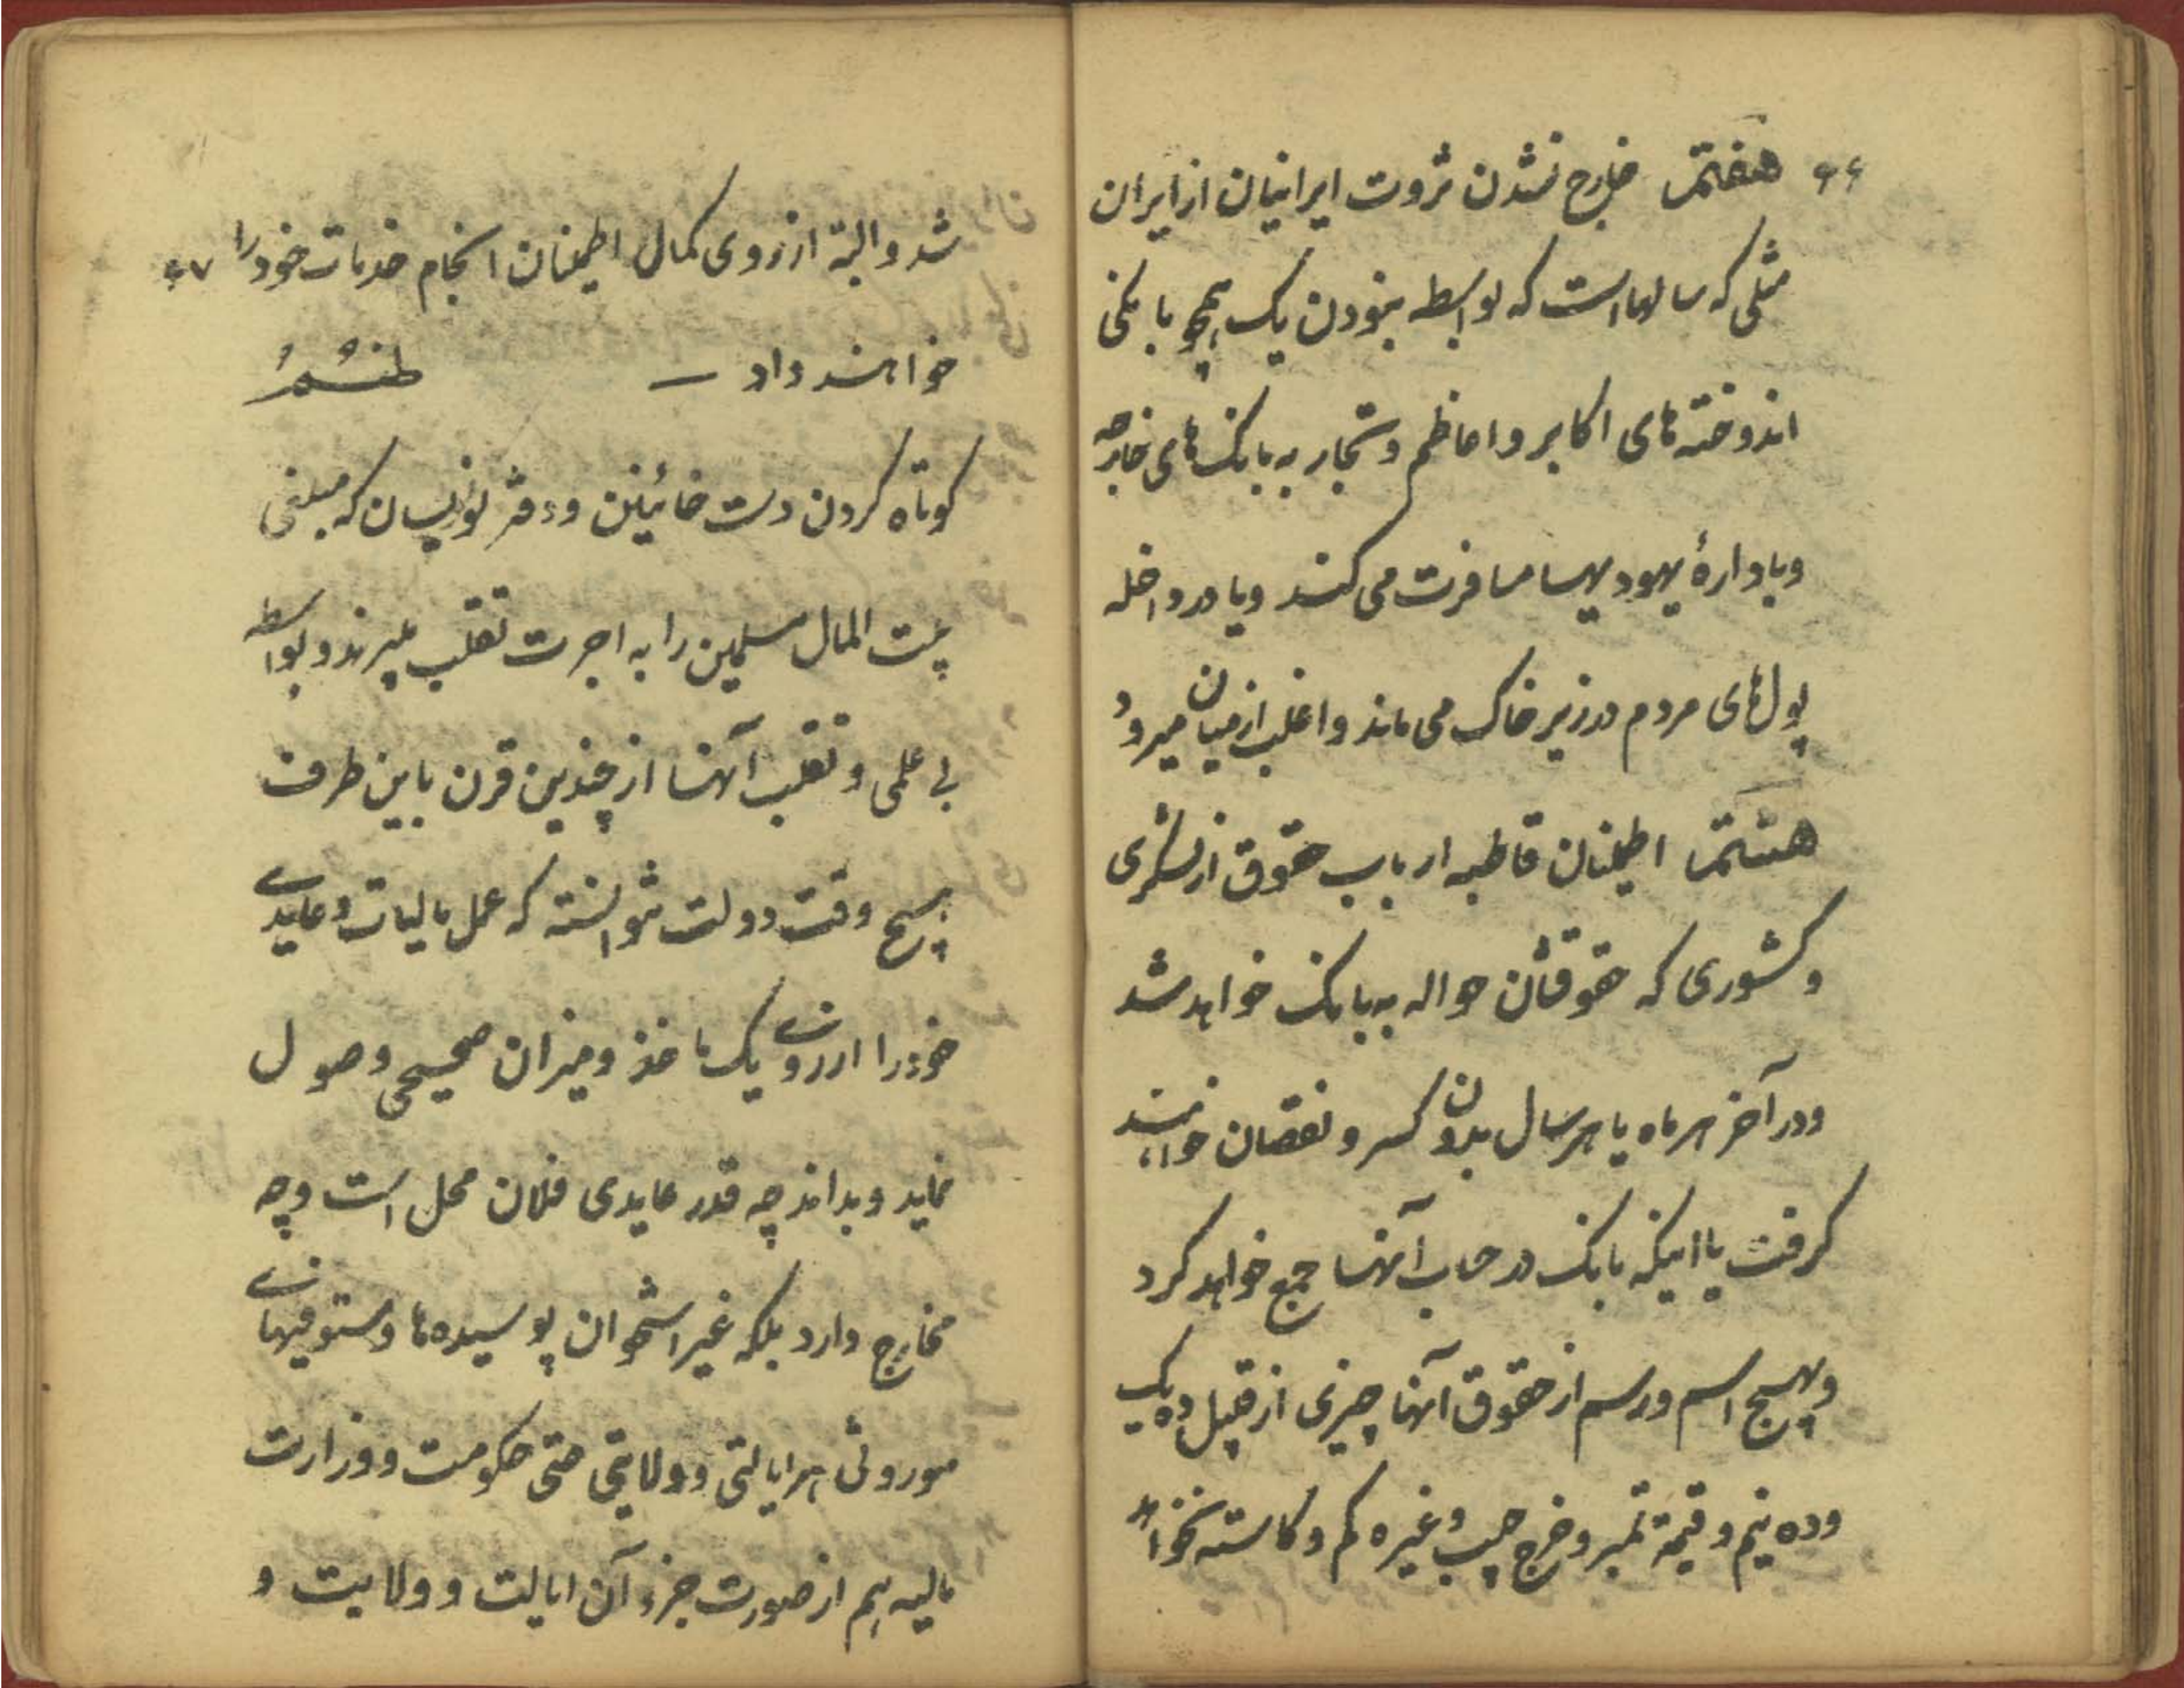 ۶۶ هفتم خارج نشدن ثروت ایرانیان از ایران
مثلی که سالها است که بواسطه نبودن یک همچو بانکی
اندوخته‌های اکابر و اعاظم و تجار به بانک‌های خارجه
و یا دارهٔ یهودیها مسافرت می کنند و یا در داخله
پول‌های مردم در زیر خاک می ماند و اغلب از میان میرود
هشتم اطمینان قاطبه ارباب حقوق از لشگری
و کشوری که حقوقشان حواله به بانک خواهد شد
و در آخر هر ماه یا هر سال بدون کسر و نقصان خواهند
گرفت یا اینکه بانک در حساب آنها جمع خواهد کرد
و بهیچ اسم و رسم از حقوق آنها چیزی از قبیل ده یک
و ده نیم و قیمة تمبر و خرج جیب و غیره کم و کاسته نخواهد
شد و البته از روی کمال اطمینان انجام خدمات خود را ۶۷
خواهند داد – نهم
کوتاه کردن دست خائنین و دفتر نویسان که مبلغی
بیت المال مسلمین را به اجرت تقلب میبرند و بواسطه
بی علمی و تقلب آنها از چندین قرن باین طرف
هیچ وقت دولت نتوانسته که عمل مالیات و عایدی
خود را از روی یک ماخذ و میزان صحیحی وصول
نماید و بداند چه قدر عایدی فلان محل است و چه
مخارج دارد بلکه غیر استخوان پوسیده‌ها و مستوفیهای
موروثی هر ایالتی و ولایتی حتی حکومت و وزارت
مالیه هم از صورت جزء آن ایالت و ولایت و